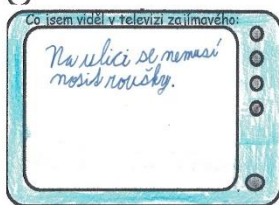 Co jsem viděl v televizi zajímavého:
Na ulici se nemusí
nosit roušky.